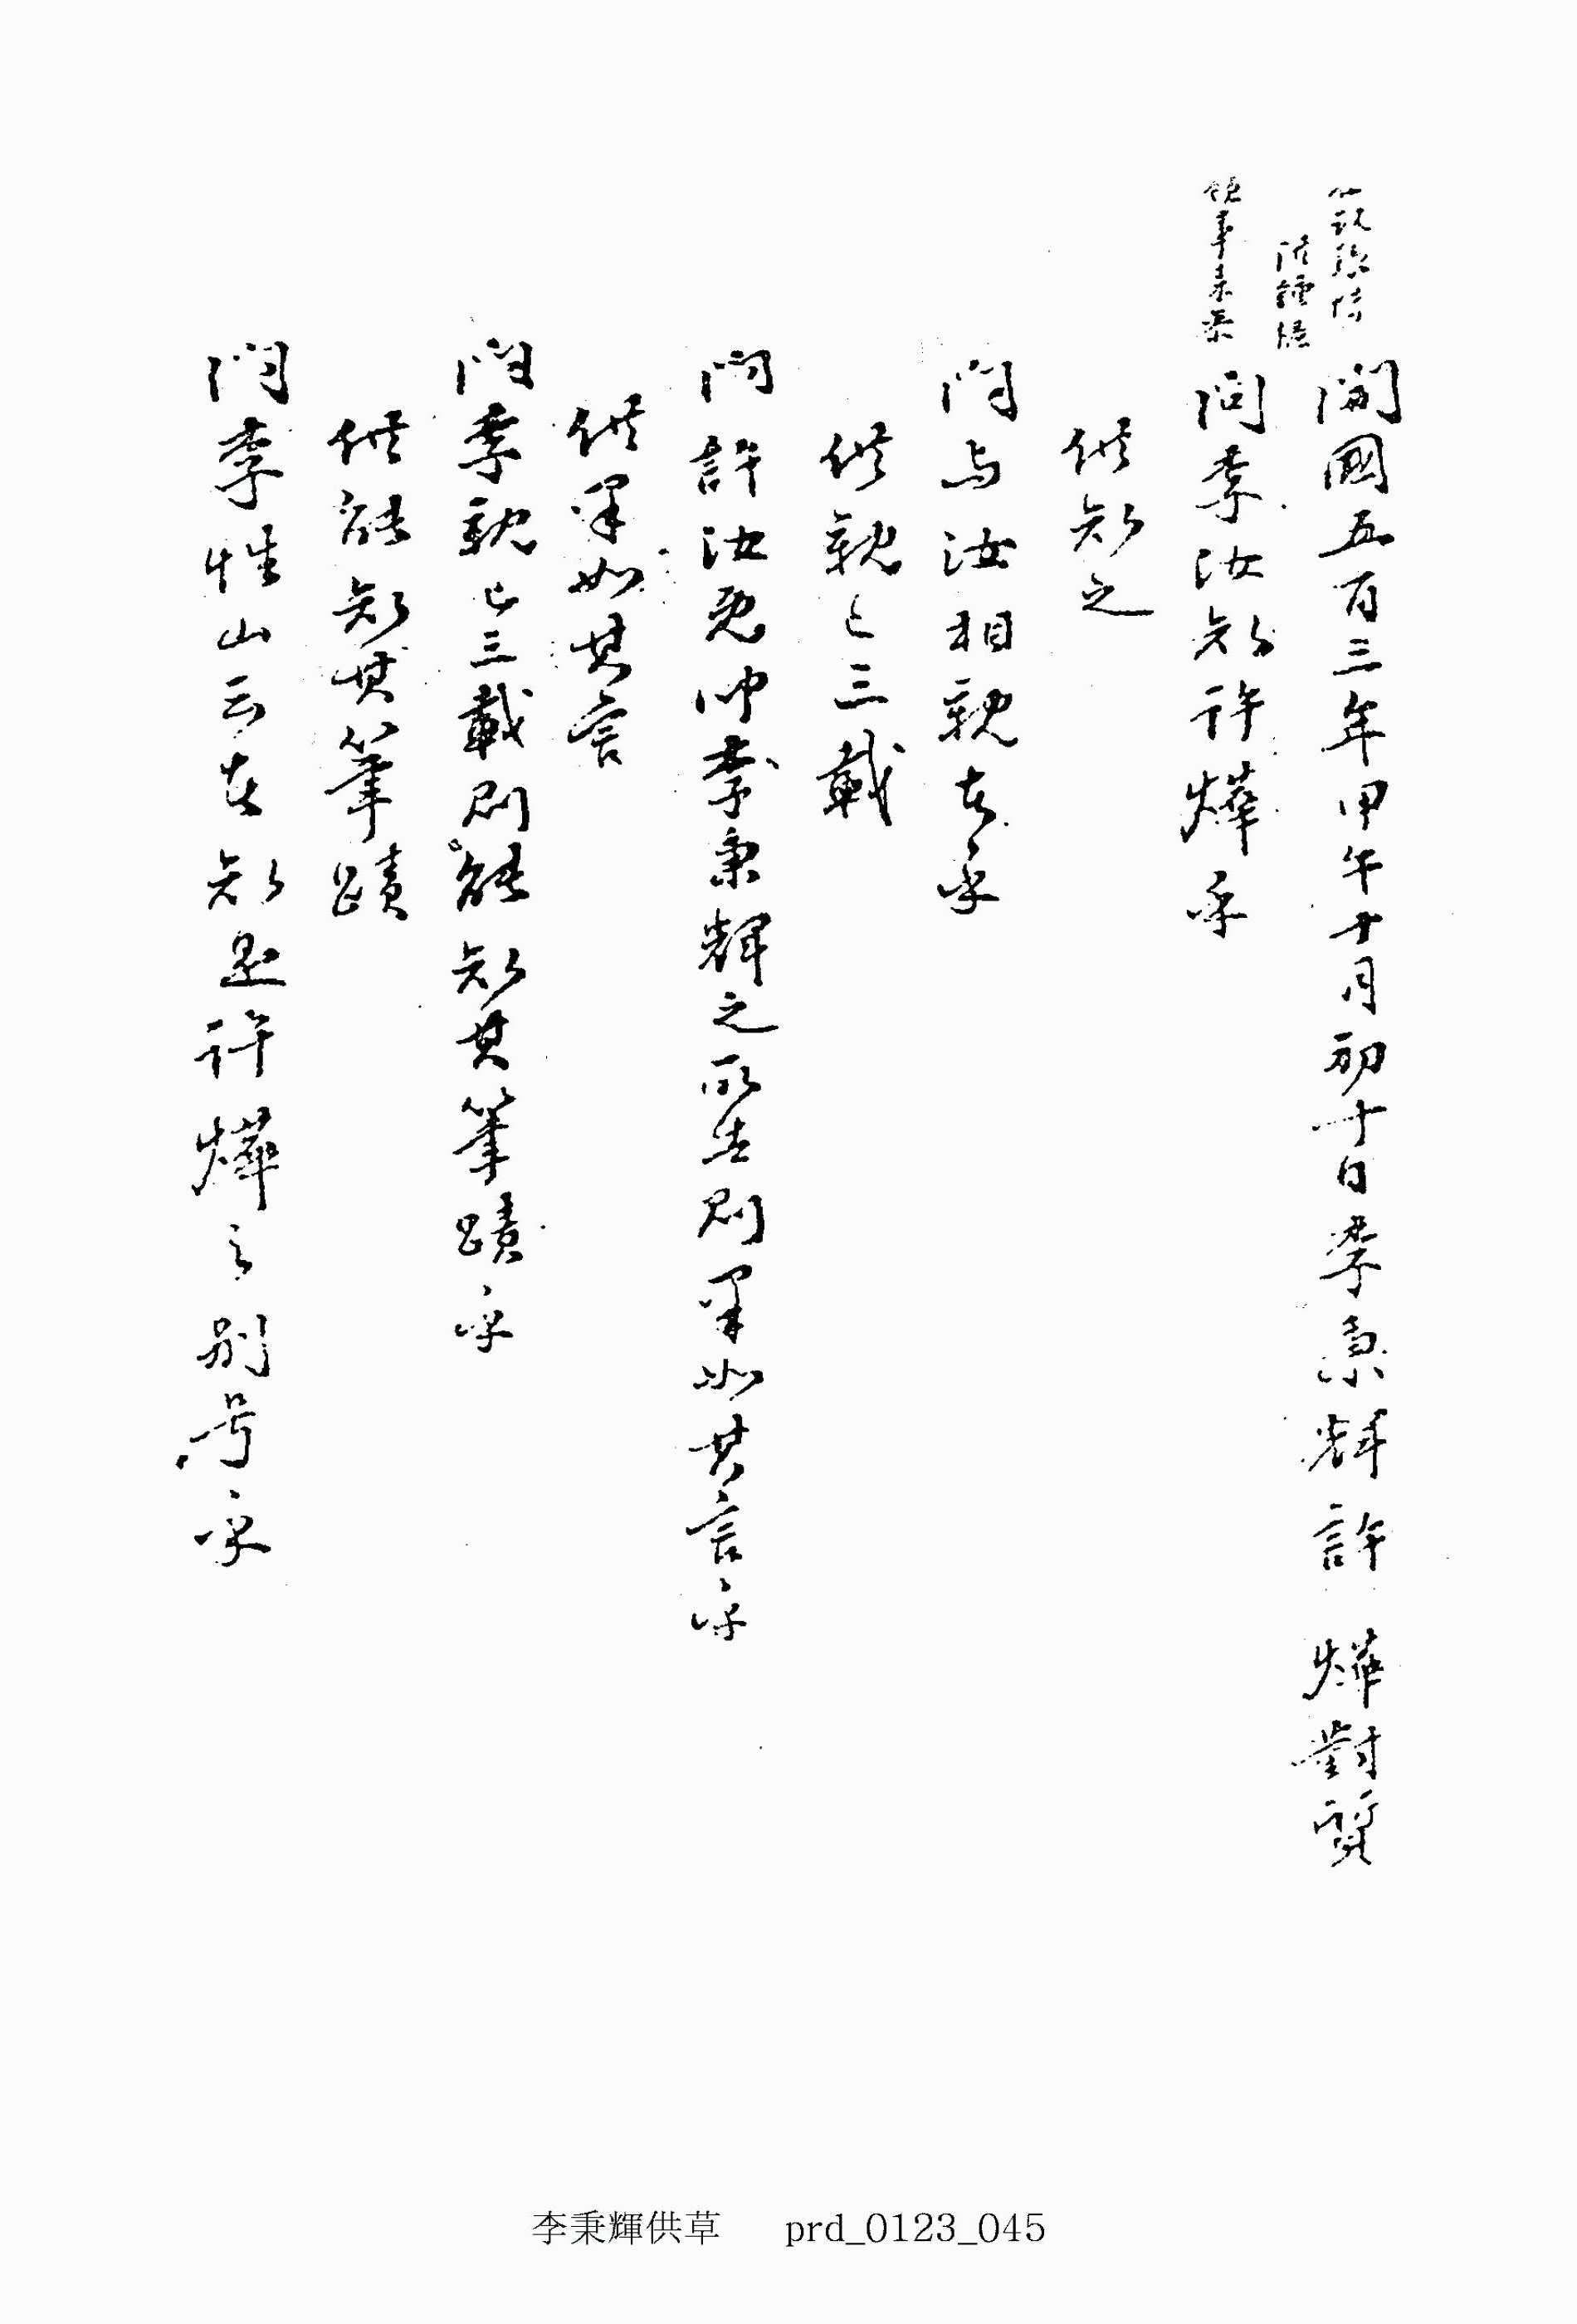 開國五百三年甲午十月初十日李秉輝許燁對質
問李汝知許燁乎
供知之
問与汝相親者乎
供親已三載
問許汝忽
李秉輝之所告則果如其言乎
供果如其言
問李親已三載則能知其筆蹟乎
供能知其筆蹟
問李性山云者知是許燁之別号乎
李秉輝供草 prd_0123_045